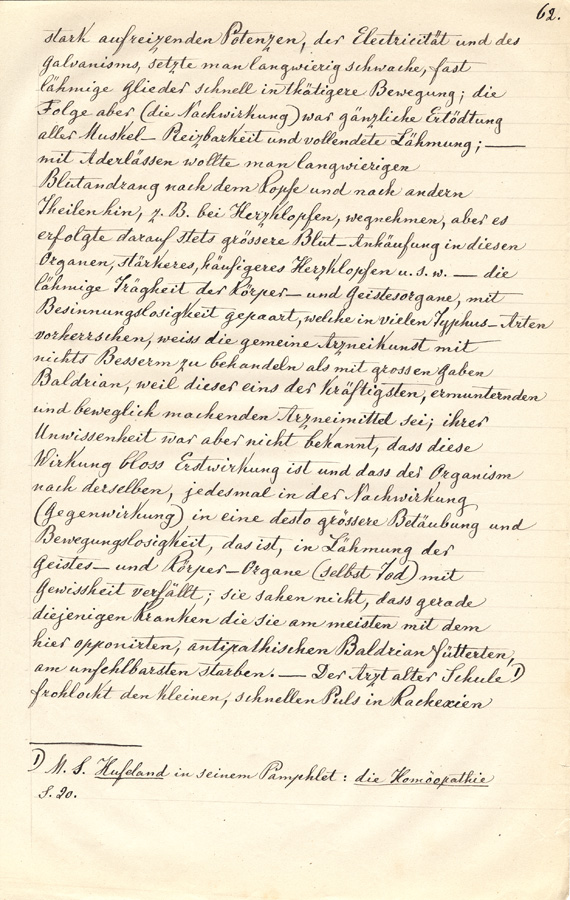 62.
stark aufreizenden Potenzen, der Electricität und des
Galvanisms, setzte man langwierig schwache, fast
lähmige Glieder schnell in thätigere Bewegung; die
Folge aber (die Nachwirkung) war gänzliche Ertödtung
aller Muskel-Reizbarkeit und vollendete Lähmung; —
mit Aderlässen wollte man langwierigen
Blutandrang nach dem Kopfe und nach andern
Theilen hin, z. B. bei Herzklopfen, wegnehmen, aber es
erfolgte darauf stets grössere Blut-Anhäufung in diesen
Organen, stärkeres, häufigeres Herzklopfen u. s. w. — die
lähmige Trägheit der Körper- und Geistesorgane, mit
Besinnungslosigkeit gepaart, welche in vielen Typhus-Arten
vorherrschen, weiss die gemeine Arzneikunst mit
nichts Besserm zu behandeln als mit grossen Gaben
Baldrian, weil dieser eins der kräftigsten, ermunternden
und beweglich machenden Arzneimittel sei; ihrer
Unwissenheit war aber nicht bekannt, dass diese
Wirkung bloss Erstwirkung ist und dass der Organism
nach derselben, jedesmal in der Nachwirkung
(Gegenwirkung) in eine desto grössere Betäubung und
Bewegungslosigkeit, das ist, in Lähmung der
Geistes- und Körper-Organe (selbst Tod) mit
Gewissheit verfällt; sie sahen nicht, dass gerade
diejenigen Kranken die sie am meisten mit dem
hier opponirten, antipathischen Baldrian fütterten,
am unfehlbarsten starben. — Der Arzt alter Schule 1)
frohlockt den kleinen, schnellen Puls in Kachexien
1) M. S. Hufeland in seinem Pamphlet: die Homöopathie
S. 20.